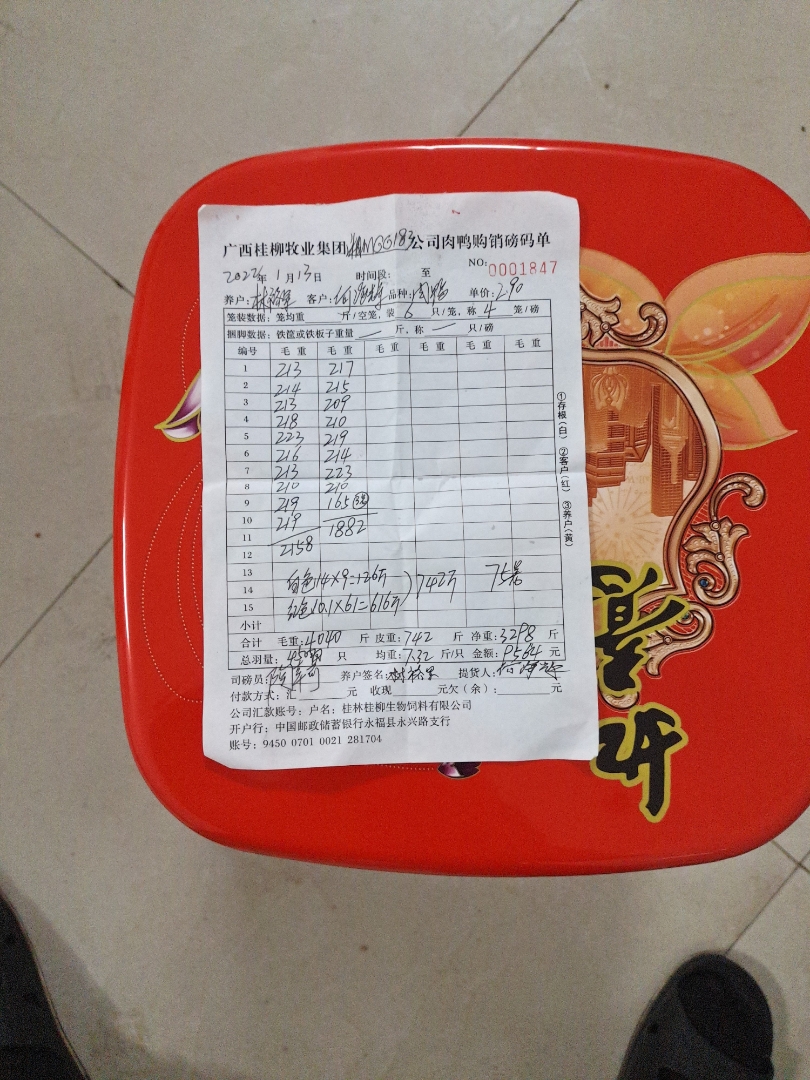 广西桂柳牧业集团 公司肉鸭购销磅码单
2022年1月13日 时间段: 至 NO: 0001847
养户: 客户: 品种:肉鸭 单价:2.90
笼装数据: 笼均重 斤/空笼,装 6 只/笼,称 4 笼/磅
捆脚数据: 铁筐或铁板子重量 — 斤,称 — 只/磅
编号 毛重 毛重 毛重 毛重 毛重 毛重
1 213 217
2 214 215
3 213 209
4 218 210
5 223 219
6 216 214
7 213 223
8 210 210
9 219 165
10 219 1882
11
12 2158
13
14 白色14×9=126斤 742斤 75
15 红色10.1×61=616斤
小计
合计 毛重:4040 斤 皮重:742 斤 净重:3298 斤
总羽量: 只 均重:7.32 斤/只 金额:9564 元
司磅员: 养户签名: 提货人:
付款方式:汇 元 收现 元欠(余): 元
公司汇款账号:户名:桂林桂柳生物饲料有限公司
开户行:中国邮政储蓄银行永福县永兴路支行
账号:9450 0701 0021 281704
①存根(白) ②客户(红) ③养户(黄)